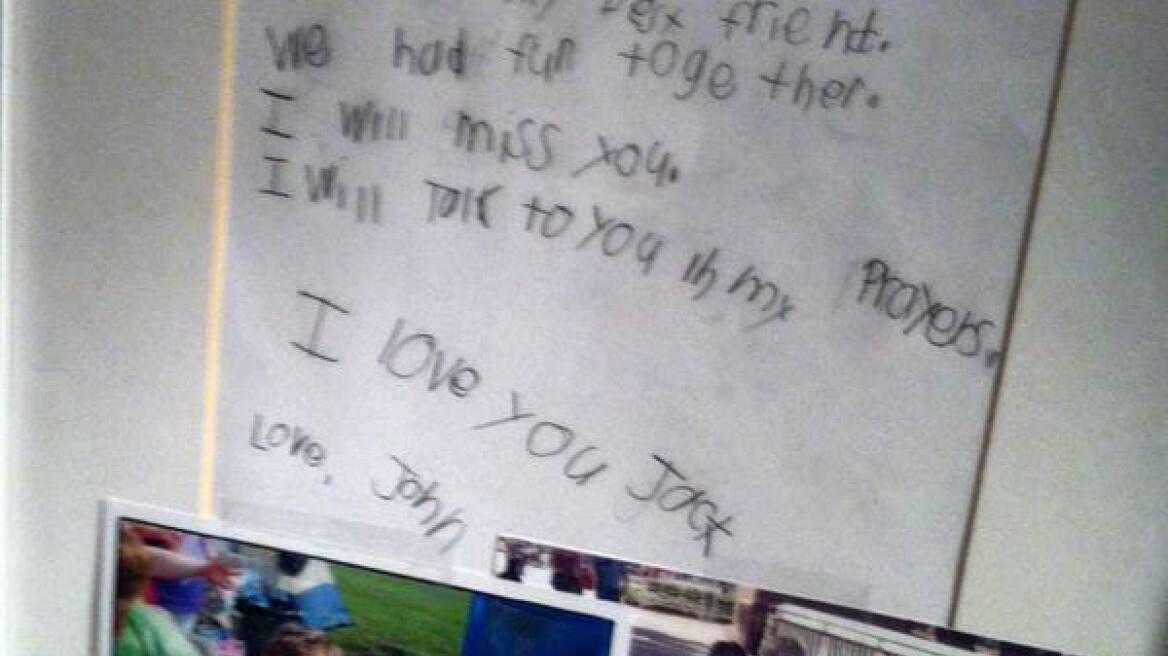 best friend.
We had fun together.
I will miss you.
I will Talk to you in my Prayers.
I love you Jack
Love, John